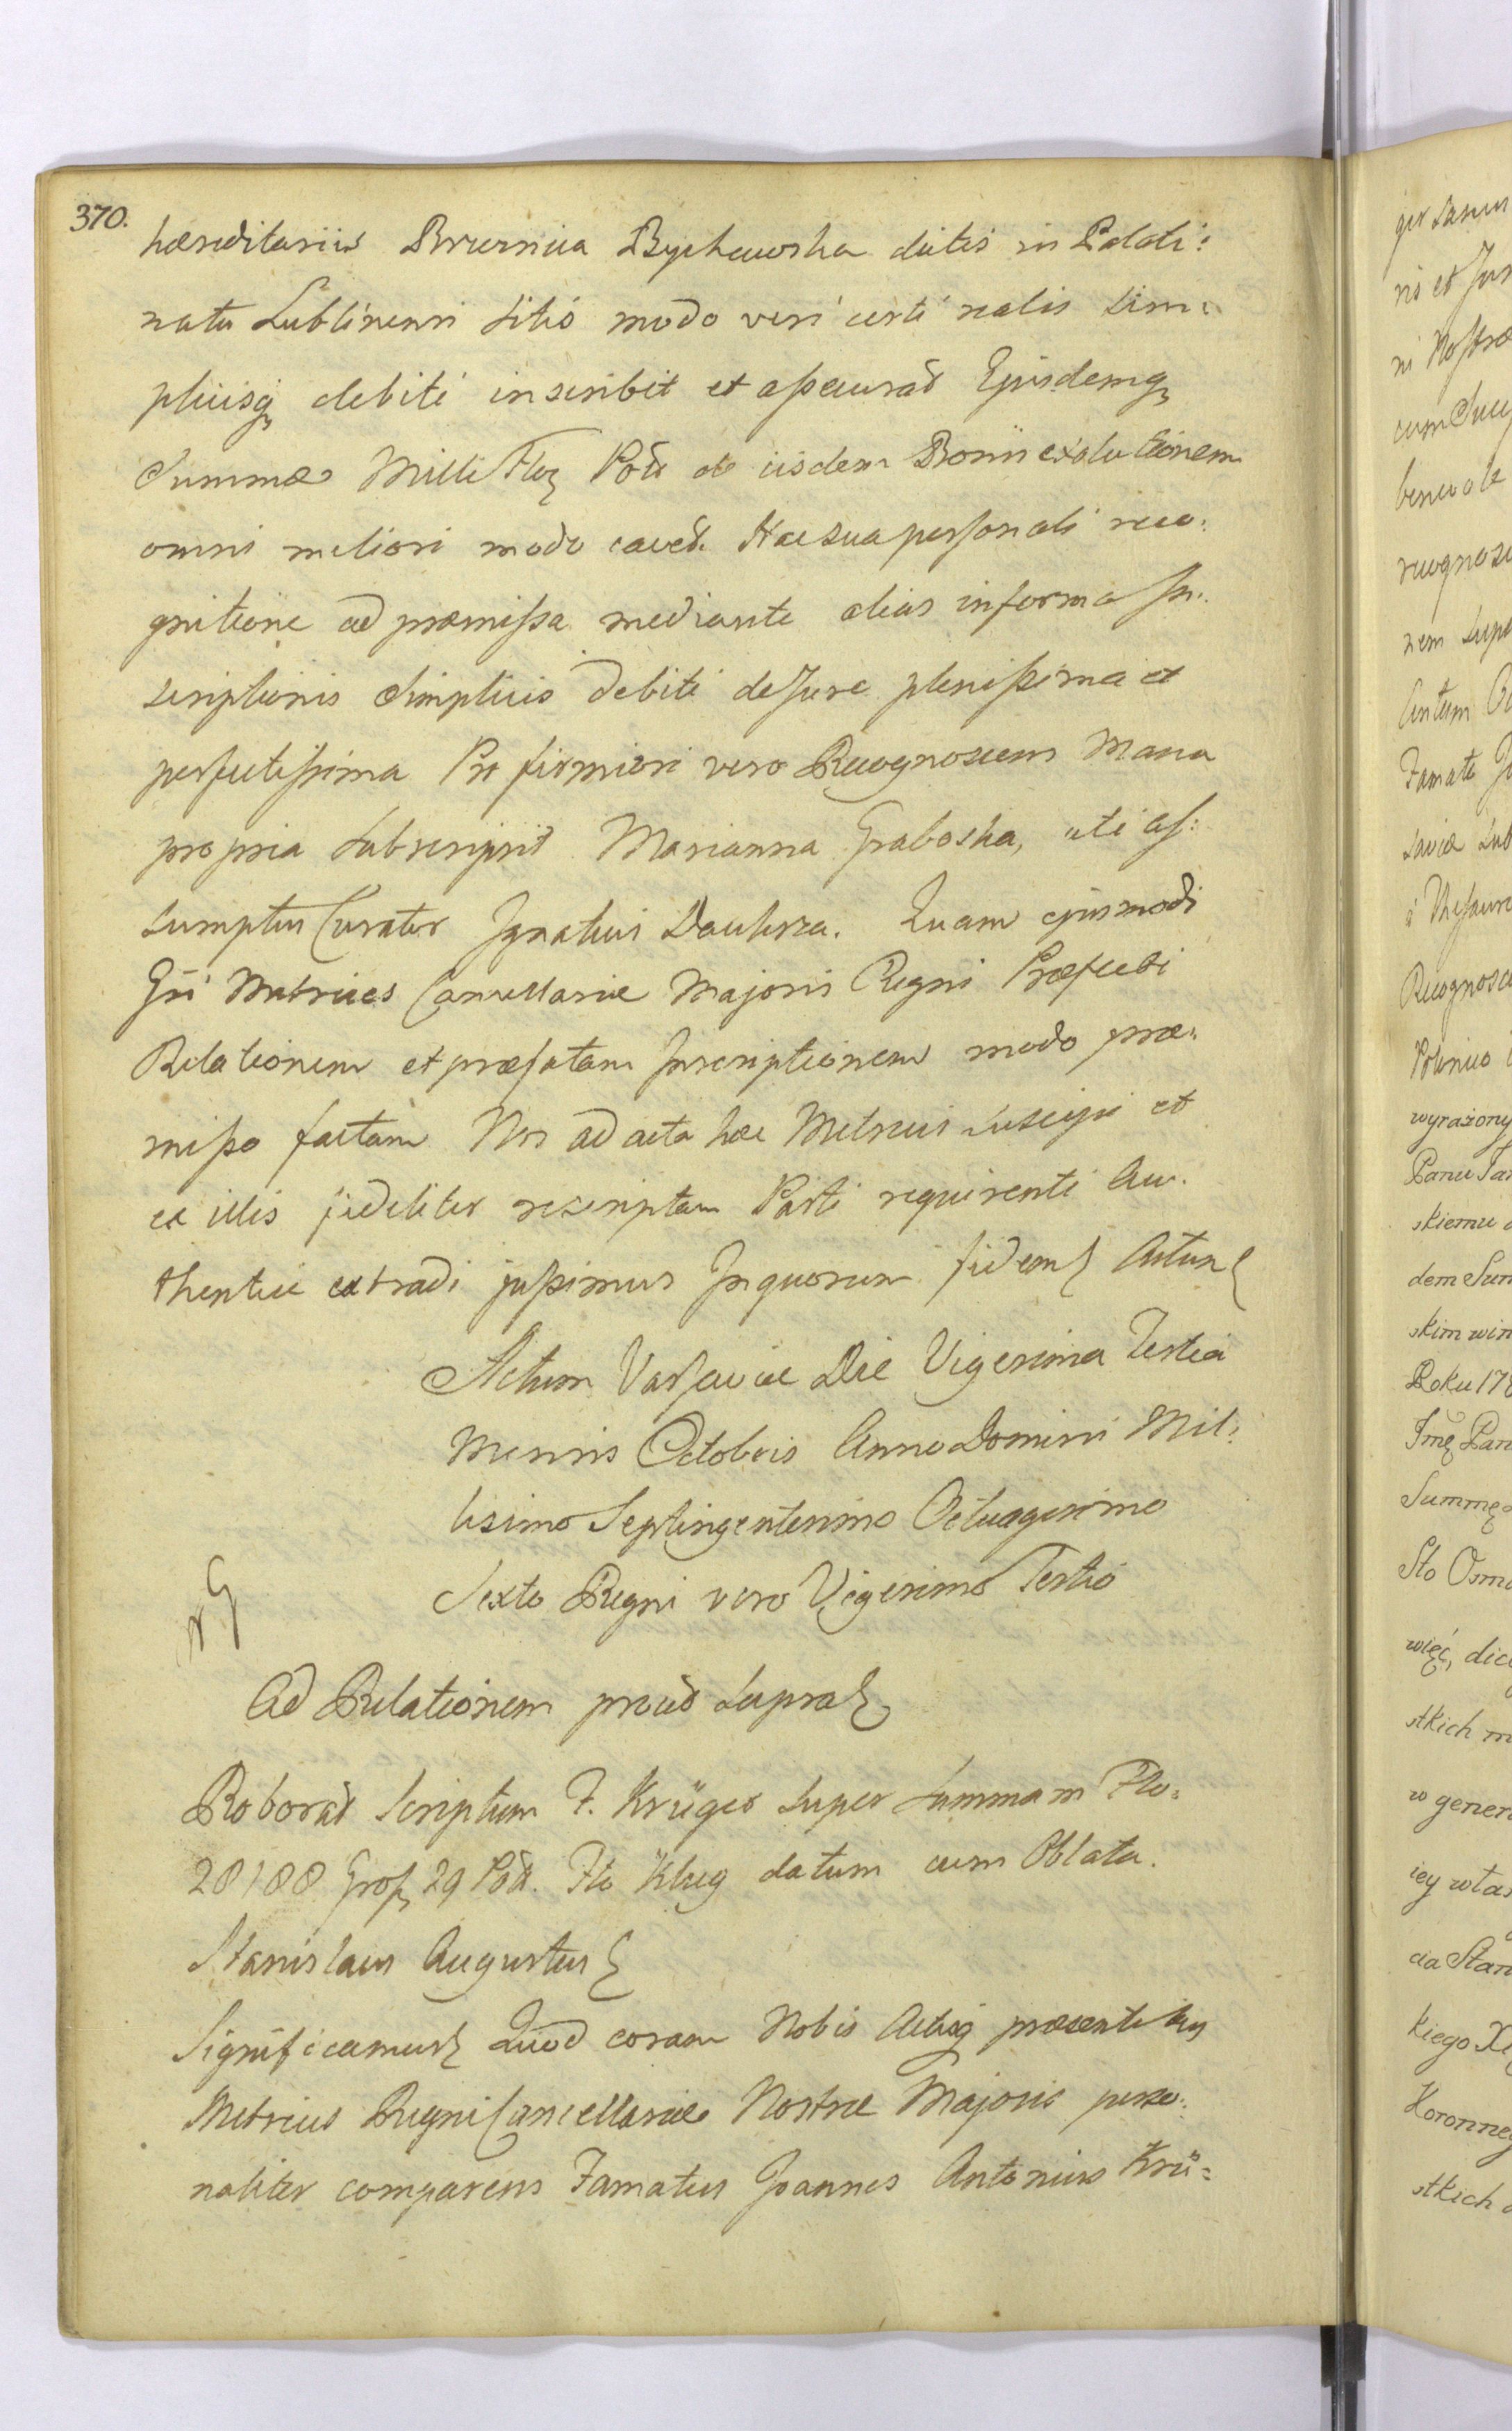 370.
hæreditariis Brzeznica Bychawska dictis in Palati:
natu Lublinensi sitis modo veri certi realis sim:
plicisq debiti inscribit et assecurat Ejusdemq
Summæ Mille Flor Poll de iisdem Bonis exolutionem
omni meliori modo cavet. Hac sua personali reco:
gnitione ad præmissa mediante alias in forma In:
scriptionis Simplicis debiti de Jure plenissima et
perfectissima Pro firmiori vero Recognoscens Manu
propria subscripsit Marianna Graboska, uti as:
sumptus Curator Ignatius Daukrza. Quam ejusmodi
Gsi Metrices Cancellariæ Majoris Regni Præfecti
Relationem et præfatam Inscriptionem modo præ:
misso factam Nos ad acta hæc Metrices suscepi et
ex illis fideliter rescriptam Parti requirenti Au:
thentice extradi jussimus In quorum fidem Actum
Actum Varsaviæ Die Vigesima Tertia
Mensis Octobris Anno Domini Mil:
lesimo Septingentesimo Octuagesimo
Sexto Regni vero Vigesimo Tertio
Ad Relationem prout supra
Roborat Scriptum F. Krüger super Summam Flo:
28188 Gros 29 Poll. Flo Klug datum cum Oblata.
Stanislaus Augustus
Significamus Quod coram Nobis Actisq præsentibus
Metrices Regni Cancellariæ Nostræ Majoris perso:
naliter comparens Famatus Joannes Antonius Krü:
ni Nostræ
benevole
Famate
wyrażony
Panu
skiemu
dem Sum
skim
Roku 178
Jmę Pan
Summę
Sto Osm
więc,
stkich
w gener
iey
cia Stan
kiego
Koronney
stkich